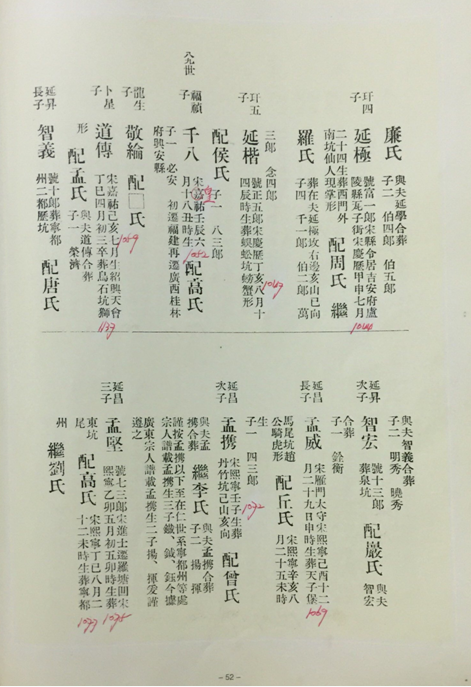 廉氏
與夫延學合葬
子二 伯四郎 伯五郎
玕四
子
延極
號富一郎宋縣令居吉安府盧
陵縣瓦子街宋慶曆甲申七月
1044
二十四生葬西門外
南坑仙人現掌形
配周氏 繼
羅氏
葬在夫延極攻右邊亥山巳向
子四 千一郎 伯二郎 萬
三郎 念四郎
玕五
子
延楷
號正五郎宋慶曆丁亥八月十
1047
四辰時生葬蜈蚣坑螃蟹形
配侯氏
子一 八三郎
八九世
福禎
子
千八
宋嘉祐壬辰六
月十八丑時生
1052
配高氏
子一 必安 初遷福建再遷廣西桂林
府興安縣
龍生
子
敬綸 配□氏
卜星
子
道傳
宋嘉祐己亥七月生紹興天會
1059
丁巳四月初三卒葬烏石坑獅
1137
形
配孟氏
與夫道傳合葬
子一 榮濟
延昇
長子
智義
號十郎葬寧都
州二都歷坑
配唐氏
與夫智義合葬
子二 明秀 曉秀
延昇
次子
智宏
號十三郎
葬泉坑
配嚴氏
與夫
智宏
合葬
子一 銓衡
延昌
長子
孟威
宋雁門太守宋熙寧己酉十二
1069
月二十九日申時生葬天子堡
馬尾坑趙
公騎虎形
配丘氏
宋熙寧辛亥八
月二十五未時
生
子一 四三郎
延昌
次子
孟攜
宋熙寧壬子生葬
1072
丹竹坑己山亥向
配曾氏
與夫孟
攜合葬
繼李氏
與夫孟攜合葬
子二 揚 揮
謹按孟攜以下至在仁世系寧都州等處
宗人譜載孟攜生三子鐵、鉞、鈺今據
廣東宗人譜載孟攜生二子揚、揮爰謹
遵之
延昌
三子
孟堅
號七三郎宋進士遷雁塘回宋
熙寧乙卯五月初五卯時生葬
1075
東坑
尾
配高氏
宋熙寧丁巳八月二
1077
十二未時生葬寧都
州
繼劉氏
- 52 -